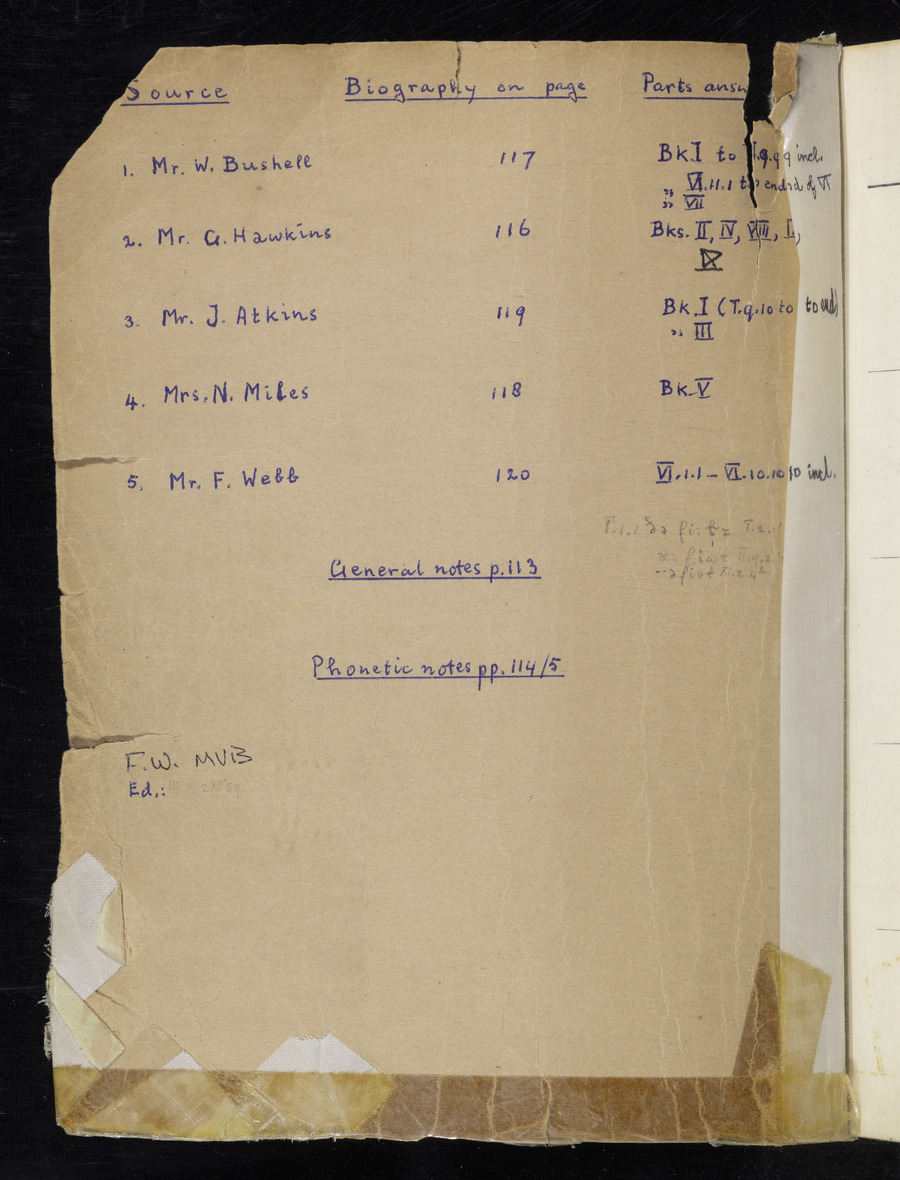 Source Biography on page Parts answ
1. Mr. W. Bushell 117 Bk.I to I.9.9 incl.
" VI.11.1 to end of VI
" VII
2. Mr. G. Hawkins 116 Bks. II, IV, VIII, I,
IX
3. Mr. J. Atkins 119 Bk.I (I.9.10 to to end)
" III
4. Mrs. N. Miles 118 Bk.V
5. Mr. F. Webb 120 VI.1.1 – VI.10.10 incl.
General notes p.113
Phonetic notes pp. 114/5
F.W. MVB
Ed.: